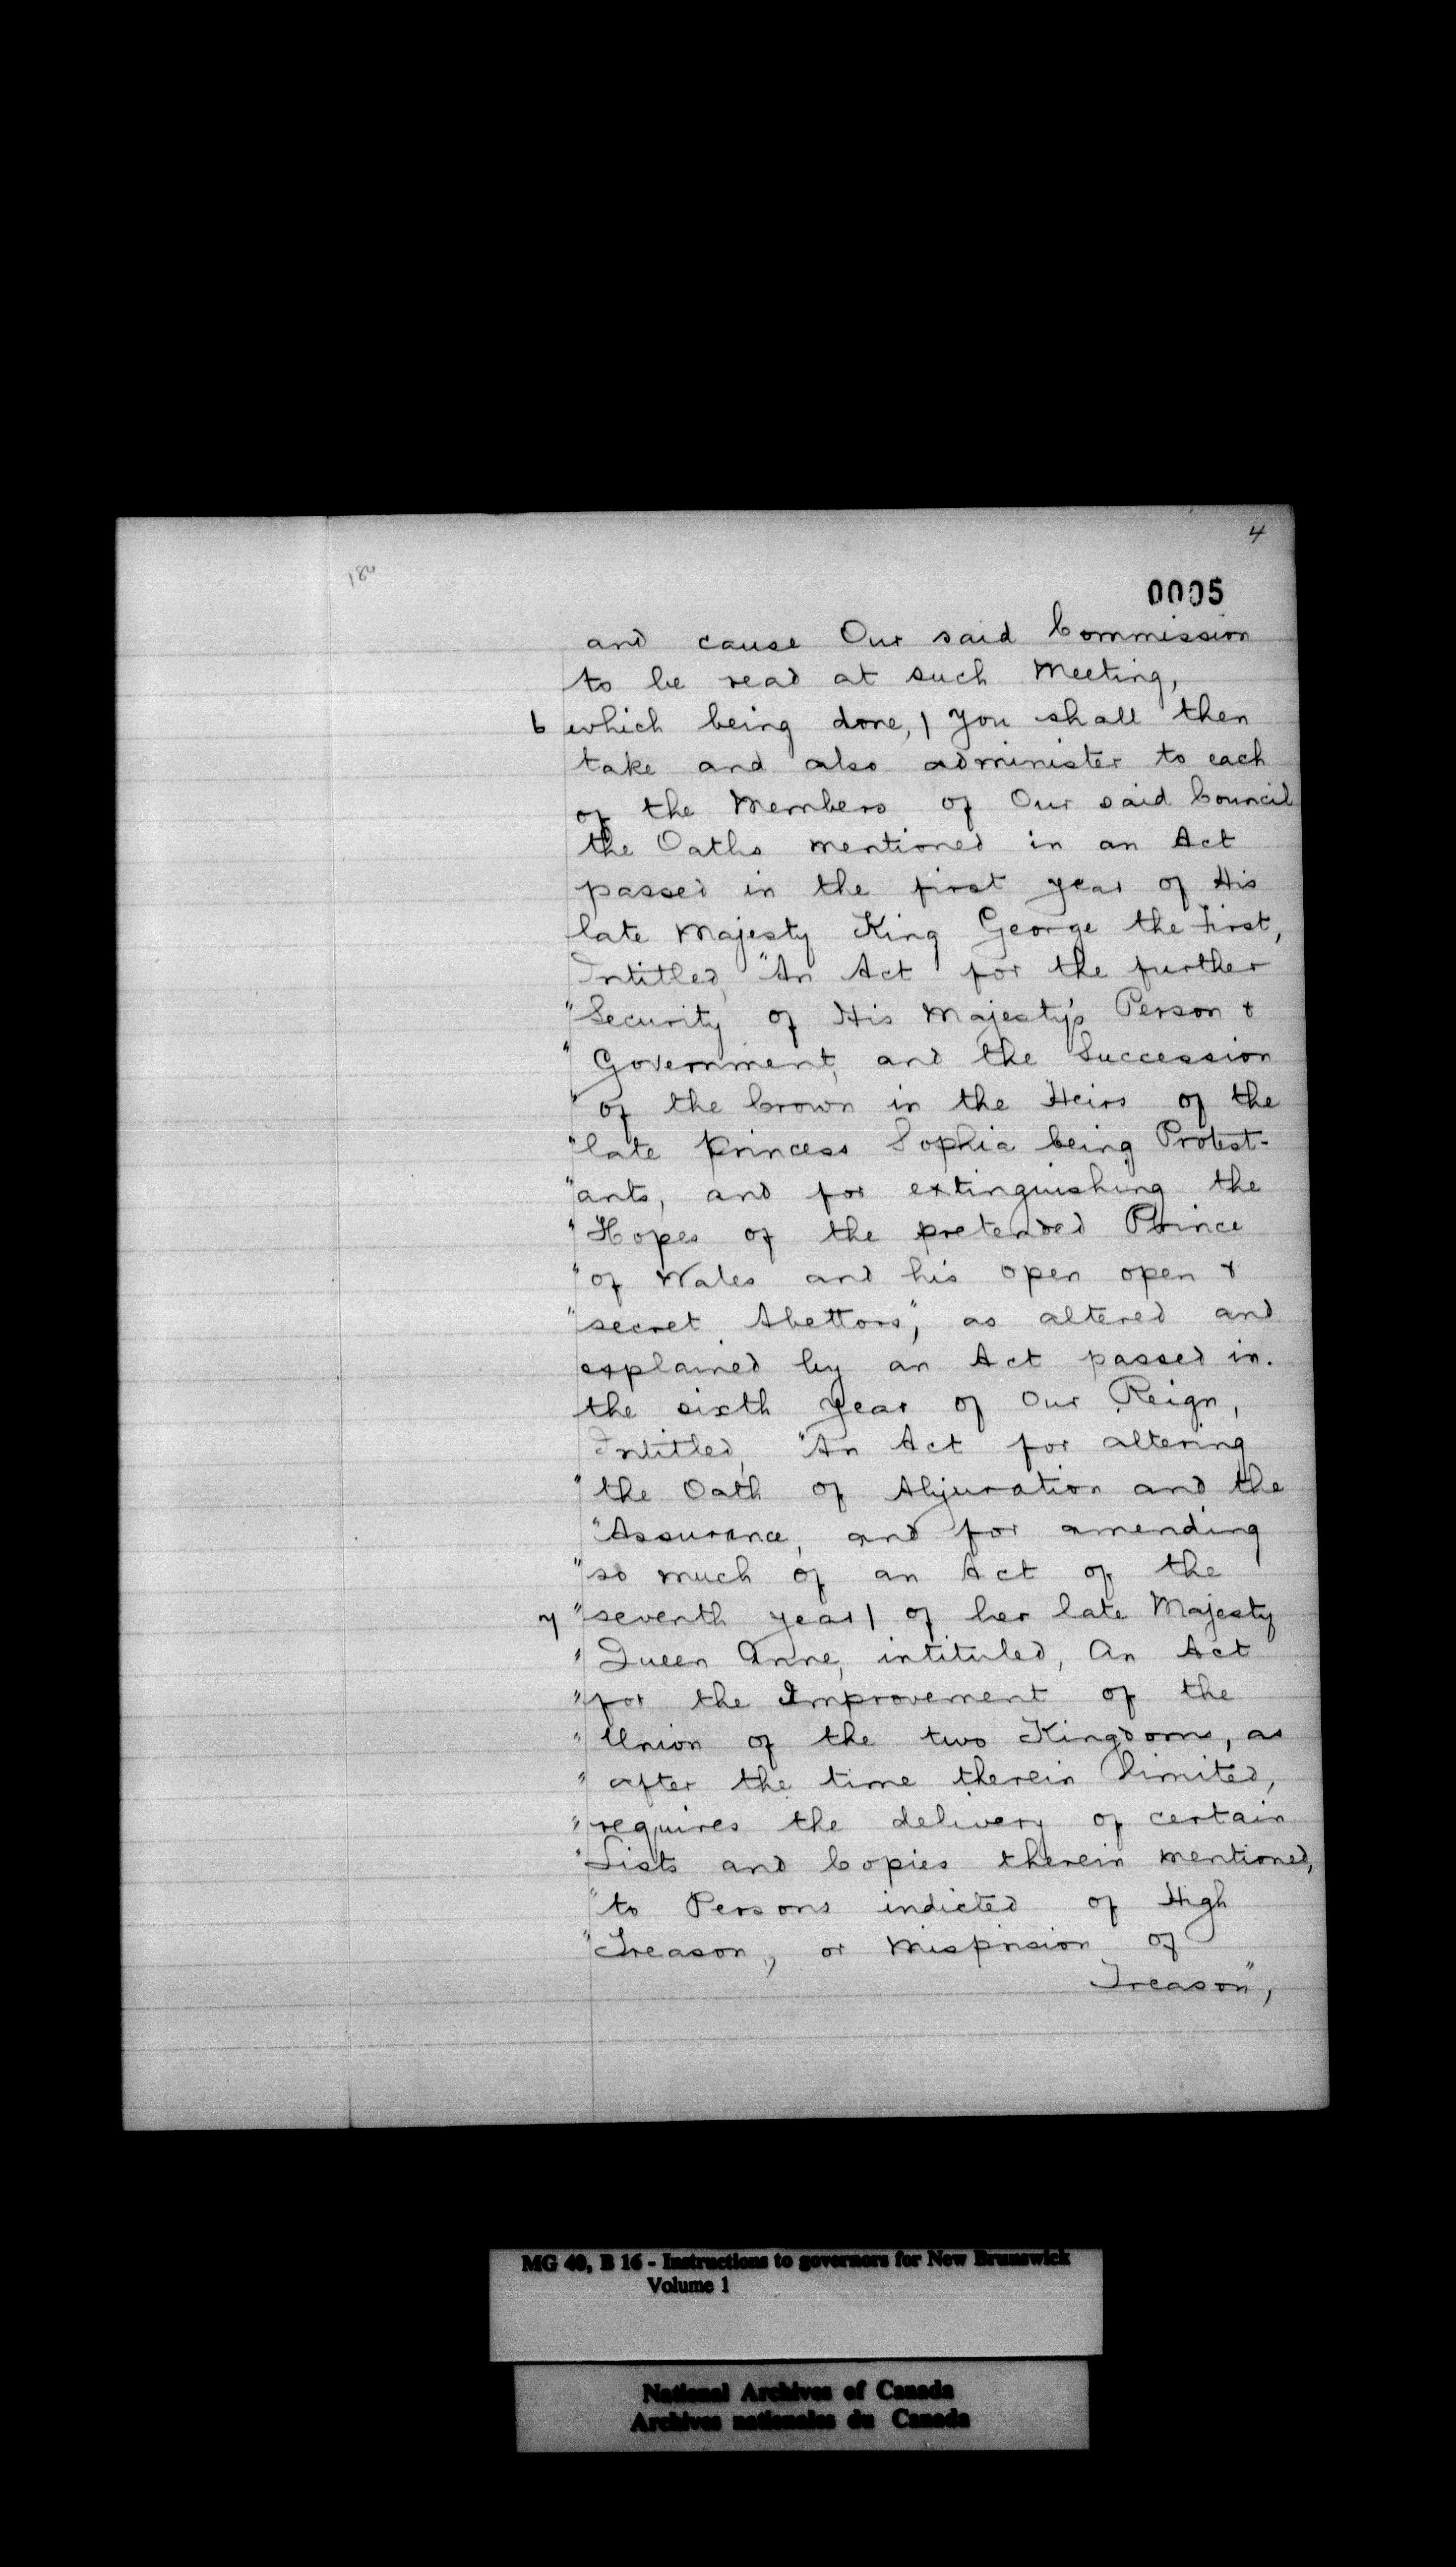 4
184
0005
and cause Our said Commission
to be read at such Meeting,
6 which being done, / you shall then
take and also administer to each
of the Members of Our said Council
the Oaths mentioned in an Act
passed in the first year of His
late Majesty King George the First,
Intitled, "An Act for the further
"Security of His Majesty's Person &
"Government, and the Succession
"of the Crown in the Heirs of the
"late Princess Sophia being Protest-
"ants, and for extinguishing the
"Hopes of the pretended Prince
"of Wales and his open open &
"secret Abettors", as altered and
explained by an Act passed in.
the sixth year of Our Reign,
Intitled, "An Act for altering
"the Oath of Abjuration and the
"Assurance, and for amending
"so much of an Act of the
7 "seventh year / of her late Majesty
"Queen Anne, intituled, An Act
"for the Improvement of the
"Union of the two Kingdoms, as
"after the time therein limited,
"requires the delivery of certain
"Lists and Copies therein mentioned,
"to Persons indicted of High
"Treason, or Misprision of
Treason",
MG 40, B 16 - Instructions to governors for New Brunswick
Volume 1
National Archives of Canada
Archives nationales du Canada